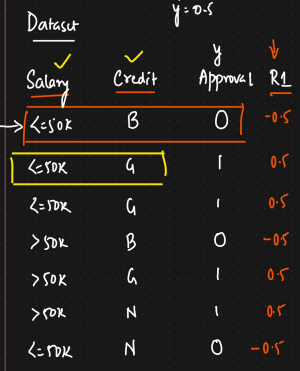 Dataset y = 0.5
y
Salary Credit Approval R1
<=50K B 0 -0.5
<=50K G 1 0.5
<=50K G 1 0.5
>50K B 0 -0.5
>50K G 1 0.5
>50K N 1 0.5
<=50K N 0 -0.5